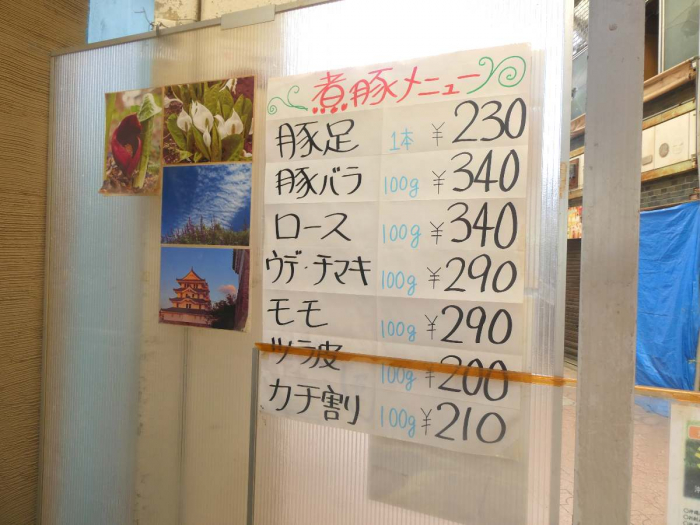 煮豚メニュー
豚足 1本 ¥230
豚バラ 100g ¥340
ロース 100g ¥340
ウデ・チマキ 100g ¥290
モモ 100g ¥290
ツラ皮 100g ¥200
カチ割 100g ¥210